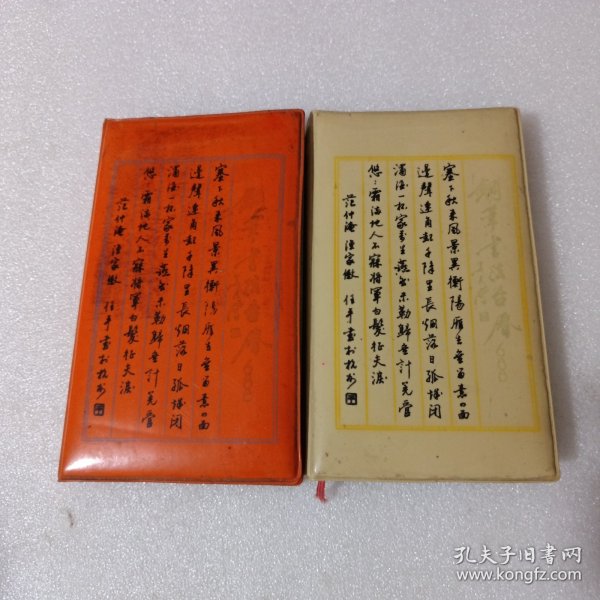 塞下秋来風景異衡陽雁去無留意四面
邊聲連角起千障里長烟落日孤城闭
濁酒一杯家萬里燕然未勒歸無計羌管
悠悠霜满地人不寐將軍白髮征夫淚
范仲淹 渔家傲 任平書於杭州
塞下秋来風景異衡陽雁去無留意四面
邊聲連角起千障里長烟落日孤城闭
濁酒一杯家萬里燕然未勒歸無計羌管
悠悠霜满地人不寐將軍白髮征夫淚
范仲淹 渔家傲 任平書於杭州
孔夫子旧书网
www.kongfz.com